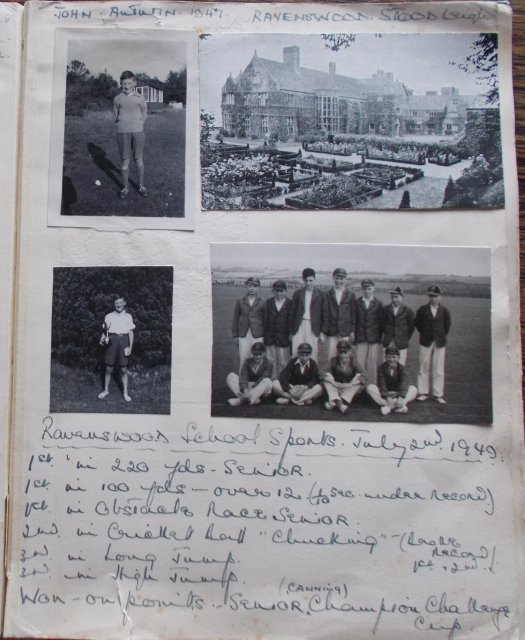 JOHN - Autumn - 1947. RAVENSWOOD Stoodleigh
Ravenswood School Sports. July 2nd. 1949.
1st in 220 yds - Senior.
1st in 100 yds - over 12 (1/10 sec. under Record)
1st in Obstacle Race Senior
2nd in Cricket Ball "Chucking" - (Broke Record) 1st & 2nd.
3rd in Long Jump.
3rd in High Jump.
(CANNING)
Won - on points - Senior Champion Challenge Cup.